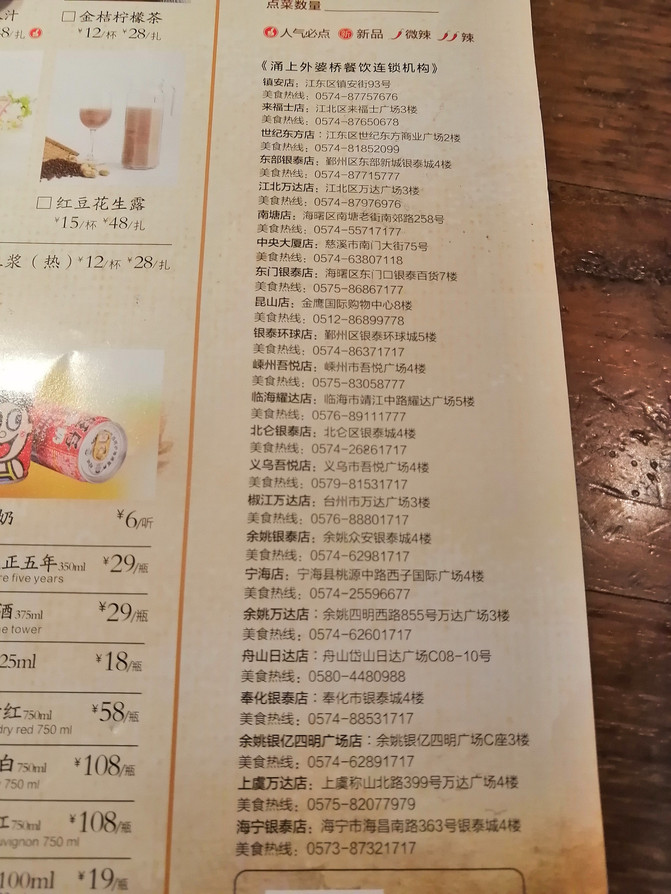 点菜数量
人气必点 新 新品 微辣 辣
《涌上外婆桥餐饮连锁机构》
镇安店：江东区镇安街93号
美食热线：0574-87757676
来福士店：江北区来福士广场3楼
美食热线：0574-87650678
世纪东方店：江东区世纪东方商业广场2楼
美食热线：0574-81852099
东部银泰店：鄞州区东部新城银泰城4楼
美食热线：0574-87715777
江北万达店：江北区万达广场3楼
美食热线：0574-87976976
南塘店：海曙区南塘老街南郊路258号
美食热线：0574-55717177
中央大厦店：慈溪市南门大街75号
美食热线：0574-63807118
东门银泰店：海曙区东门口银泰百货7楼
美食热线：0575-86867177
昆山店：金鹰国际购物中心8楼
美食热线：0512-86899778
银泰环球店：鄞州区银泰环球城5楼
美食热线：0574-86371717
嵊州吾悦店：嵊州市吾悦广场4楼
美食热线：0575-83058777
临海耀达店：临海市靖江中路耀达广场5楼
美食热线：0576-89111777
北仑银泰店：北仑区银泰城4楼
美食热线：0574-26861717
义乌吾悦店：义乌市吾悦广场4楼
美食热线：0579-81531717
椒江万达店：台州市万达广场3楼
美食热线：0576-88801717
余姚银泰店：余姚众安银泰城4楼
美食热线：0574-62981717
宁海店：宁海县桃源中路西子国际广场4楼
美食热线：0574-25596677
余姚万达店：余姚四明西路855号万达广场3楼
美食热线：0574-62601717
舟山日达店：舟山岱山日达广场C08-10号
美食热线：0580-4480988
奉化银泰店：奉化市银泰城4楼
美食热线：0574-88531717
余姚银亿四明广场店：余姚银亿四明广场C座3楼
美食热线：0574-62891717
上虞万达店：上虞称山北路399号万达广场4楼
美食热线：0575-82077979
海宁银泰店：海宁市海昌南路363号银泰城4楼
美食热线：0573-87321717
汁
8/扎
□金桔柠檬茶
¥12/杯 ¥28/扎
□红豆花生露
¥15/杯 ¥48/扎
浆（热）¥12/杯 ¥28/扎
奶 ¥6/听
正五年350ml ¥29/瓶
re five years
酒375ml ¥29/瓶
e tower
25ml ¥18/瓶
红750ml ¥58/瓶
dry red 750 ml
白750ml ¥108/瓶
750 ml
红750ml ¥108/瓶
uvignon 750 ml
100ml ¥19/瓶